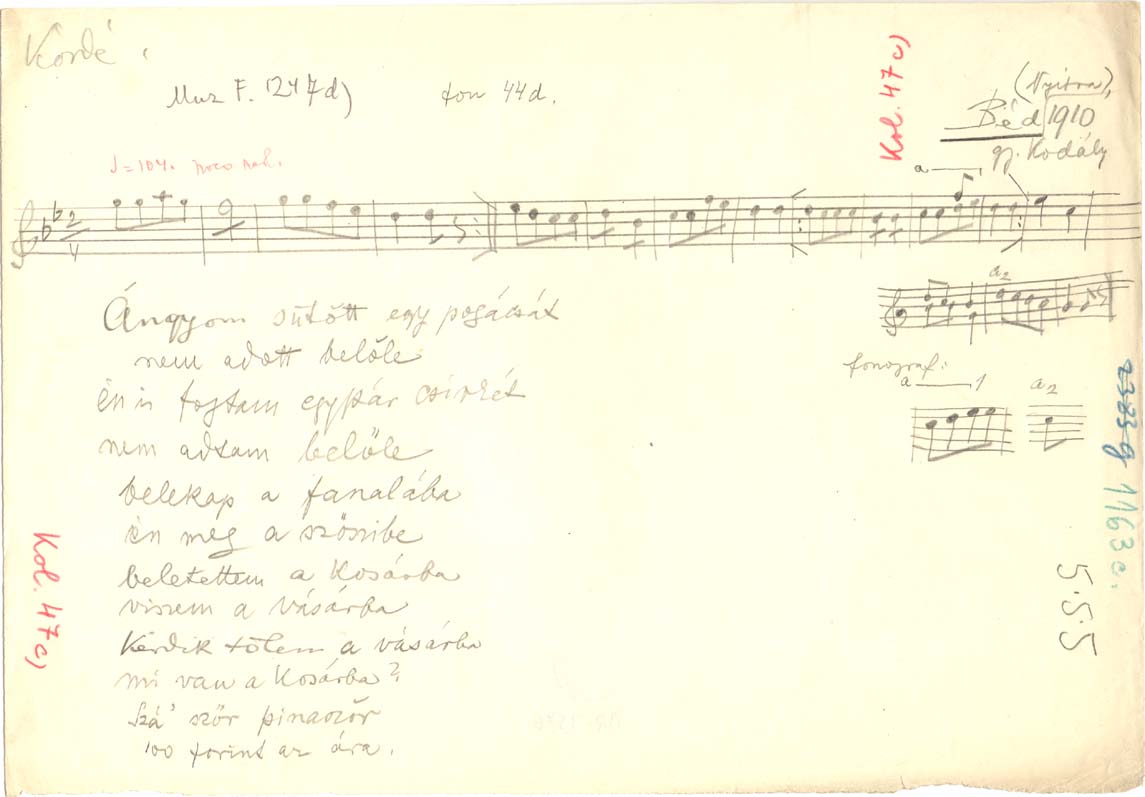 Kordé.
Muz F. 1247d)
ton 44d.
Kol. 47c)
(Nyitra),
Béd 1910
gy. Kodály
♩=104. poco rub.
a
2
Ángyom sütött egy pogácsát
nem adott belőle
én is fogtam egypár csirkét
nem adtam belőle
belekap a fanalába
én meg a szöszibe
beletettem a Kosárba
viszem a vásárba
Kérdik tőlem a vásárba
mi van a Kosárba?
Szá' ször pinaször
100 forint az ára.
a2
fonograf:
a 1
a2
1163c.
5.5.5
Kol. 47c)